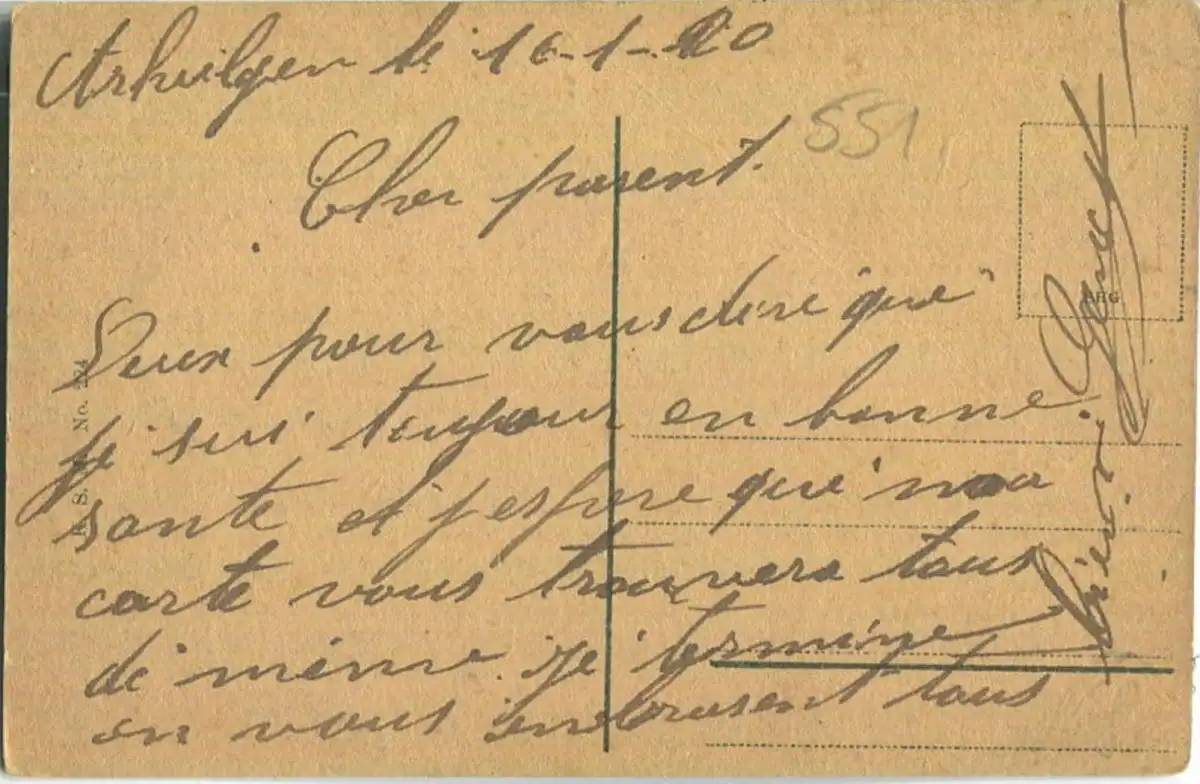 Arheilgen le 16-1-20
551
Cher parent.
Deux pour vous dire que
je sui toujour en bonne
sante et j'espere que ma
carte vous trouvera tous
de même. je termine
en vous enbrasent tous
No.
S.